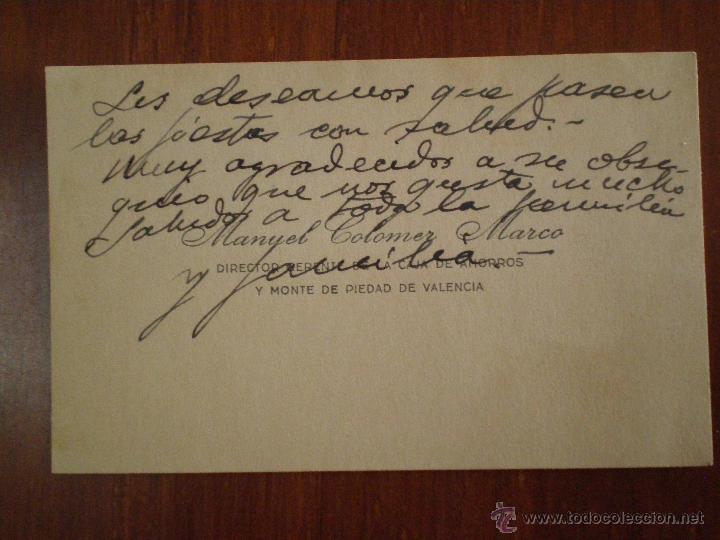 Les deseamos que pasen
las fiestas con salud.-
Muy agradecidos a su obse-
quio que nos gusta mucho
Saludos a toda la familia
Manuel Colomer Marco
DIRECTOR GERENTE DE LA CAJA DE AHORROS
y familia.-
Y MONTE DE PIEDAD DE VALENCIA
© www.todocoleccion.net